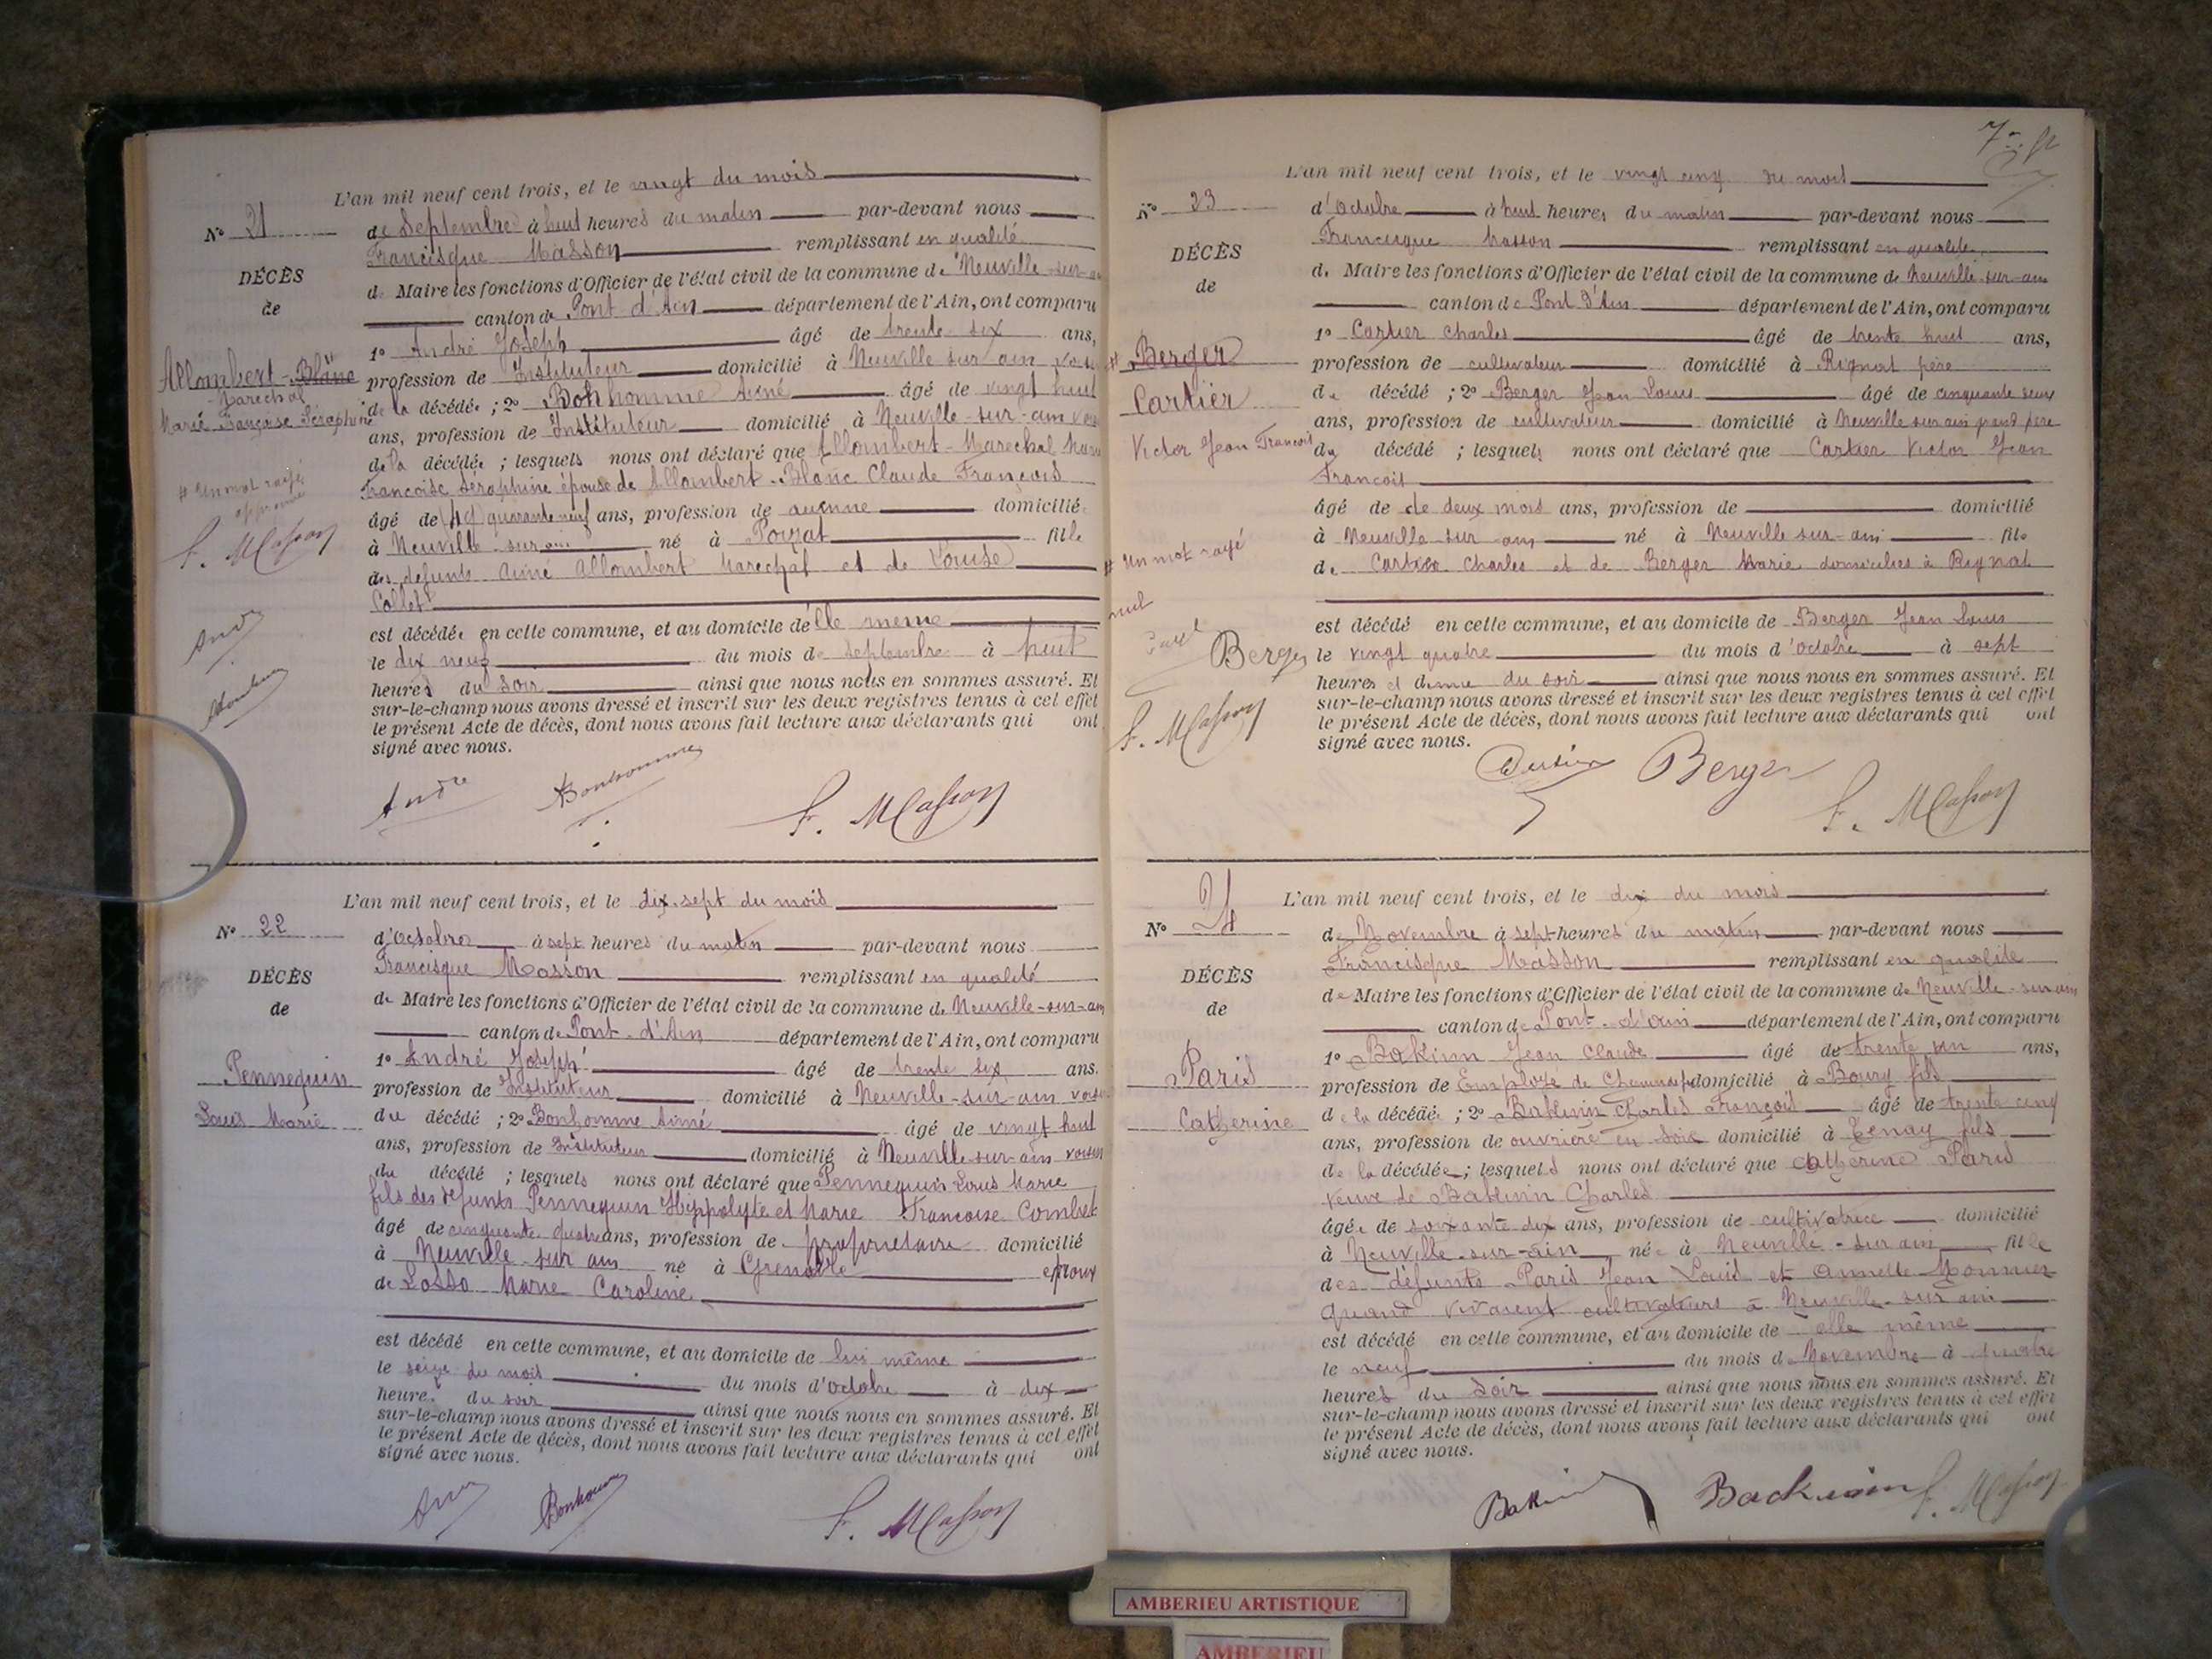 L'an mil neuf cent trois, et le vingt du mois
N° 21
de Septembre à huit heures du matin par-devant nous
Francisque Masson remplissant en qualité
DÉCÈS
de Maire les fonctions d'Officier de l'état civil de la commune de Neuville-sur-
de
canton de Pont d'Ain département de l'Ain, ont comparu
1° André Joseph âgé de trente six ans,
Allombert-Blanc
Marechal
Marie Françoise Séraphine
profession de Instituteur domicilié à Neuville sur ain voisin
de la décédée ; 2° Bonhomme Aimé âgé de vingt huit
ans, profession de Instituteur domicilié à Neuville-sur-ain
de la décédée ; lesquels nous ont déclaré que Allombert-Marechal Marie
Françoise Séraphine épouse de Allombert-Blanc Claude François
# Un mot rayé
approuvé
F. Masson
âgé de (49) quarante neuf ans, profession de aucune domicilié
à Neuville sur ain né à Poizat fille
des defunts Aimé Allombert Marechal et de Louise
Collet
André
Bonhomme
est décédée en cette commune, et au domicile de elle même
le dix neuf du mois de Septembre à huit
heures du soir ainsi que nous nous en sommes assuré. Et
sur-le-champ nous avons dressé et inscrit sur les deux registres tenus à cet effet
le présent Acte de décès, dont nous avons fait lecture aux déclarants qui ont
signé avec nous.
André Bonhomme F. Masson
L'an mil neuf cent trois, et le dix-sept du mois
N° 22
d'Octobre à sept heures du matin par-devant nous
Francisque Masson remplissant en qualité
DÉCÈS
de Maire les fonctions d'Officier de l'état civil de la commune de Neuville-sur-ain
de
canton de Pont-d'Ain département de l'Ain, ont comparu
1° André Joseph âgé de trente six ans.
Pennequin
Louis Marie
profession de Instituteur domicilié à Neuville-sur-ain voisin
du décédé ; 2° Bonhomme Aimé âgé de vingt huit
ans, profession de Instituteur domicilié à Neuville-sur-ain voisin
du décédé ; lesquels nous ont déclaré que Pennequin Louis Marie
fils des défunts Pennequin Hippolyte et Marie Francoise Combet
âgé de cinquante quatre ans, profession de propriétaire domicilié
à Neuville-sur ain né à Grenoble époux
de Losso Marie Caroline
est décédé en cette commune, et au domicile de lui même
le seize du mois du mois d'octobre à dix
heure. du soir ainsi que nous nous en sommes assuré. Et
sur-le-champ nous avons dressé et inscrit sur les deux registres tenus à cet effet
le présent Acte de décès, dont nous avons fait lecture aux déclarants qui ont
signé avec nous.
Bonhomme F. Masson
7
L'an mil neuf cent trois, et le vingt cinq du mois
N° 23
d'Octobre à huit heures du matin par-devant nous
Francisque Masson remplissant en qualité
DÉCÈS
de Maire les fonctions d'Officier de l'état civil de la commune de Neuville-sur-ain
de
canton de Pont d'Ain département de l'Ain, ont comparu
1° Cartier Charles âgé de trente huit ans,
# Berger
Cartier
Victor Jean François
profession de cultivateur domicilié à Rignat père
du décédé ; 2° Berger Jean Louis âgé de cinquante
ans, profession de cultivateur domicilié à Neuville sur ain grand père
du décédé ; lesquels nous ont déclaré que Cartier Victor Jean
François
âgé de de deux mois ans, profession de domicilié
à Neuville-sur ain né à Neuville sur-ain fils
de Cartier Charles et de Berger Marie domiciliés à Rignat
# Un mot rayé
nul
Berger
F. Masson
est décédé en cette commune, et au domicile de Berger Jean Louis
le vingt quatre du mois d'Octobre à sept
heures et demie du soir ainsi que nous nous en sommes assuré. Et
sur-le-champ nous avons dressé et inscrit sur les deux registres tenus à cet effet
le présent Acte de décès, dont nous avons fait lecture aux déclarants qui ont
signé avec nous.
Cartier Berger F. Masson
L'an mil neuf cent trois, et le dix du mois
N° 24
de Novembre à sept heures du matin par-devant nous
Francisque Masson remplissant en qualité
DÉCÈS
de Maire les fonctions d'Officier de l'état civil de la commune de Neuville-sur ain
de
canton de Pont-d'ain département de l'Ain, ont comparu
1° Bakinn Jean Claude âgé de trente un ans,
Paris
Catherine
profession de Employé de Chemins domicilié à Bourg fils
de la décédée ; 2° Charles François âgé de trente cinq
ans, profession de ouvrière en Soie domicilié à Tenay fils
de la décédée ; lesquels nous ont déclaré que Catherine Paris
veuve de Charles
âgée de soixante-dix ans, profession de cultivatrice domicilié
à Neuville-sur-ain née à Neuville-sur ain fille
des défunts Paris Jean Louis et Annette Monnier
quand vivaient cultivateurs à Neuville-sur ain
est décédé en cette commune, et au domicile de elle même
le neuf du mois de Novembre à quatre
heures du Soir ainsi que nous nous en sommes assuré. Et
sur-le-champ nous avons dressé et inscrit sur les deux registres tenus à cet effet
le présent Acte de décès, dont nous avons fait lecture aux déclarants qui ont
signé avec nous.
F. Masson
AMBERIEU ARTISTIQUE
AMBERIEU